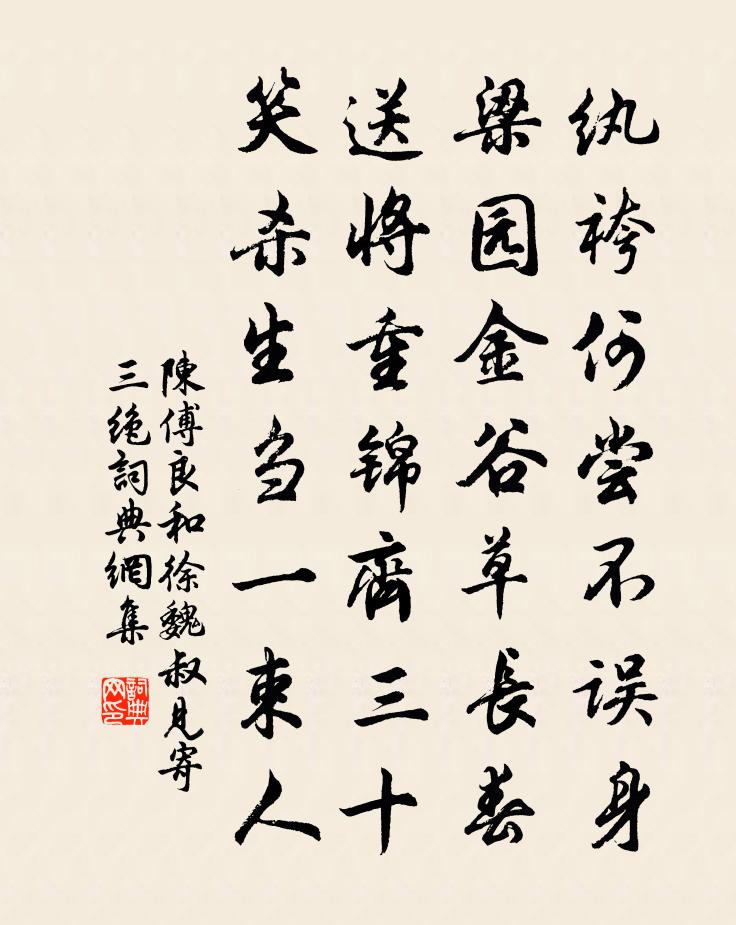 纨袴何尝不误身
梁园金谷草長春
送將重锦齊三十
笑杀生刍一束人
陳傅良和徐魏叔見寄
三绝詞典網集
詞典网印